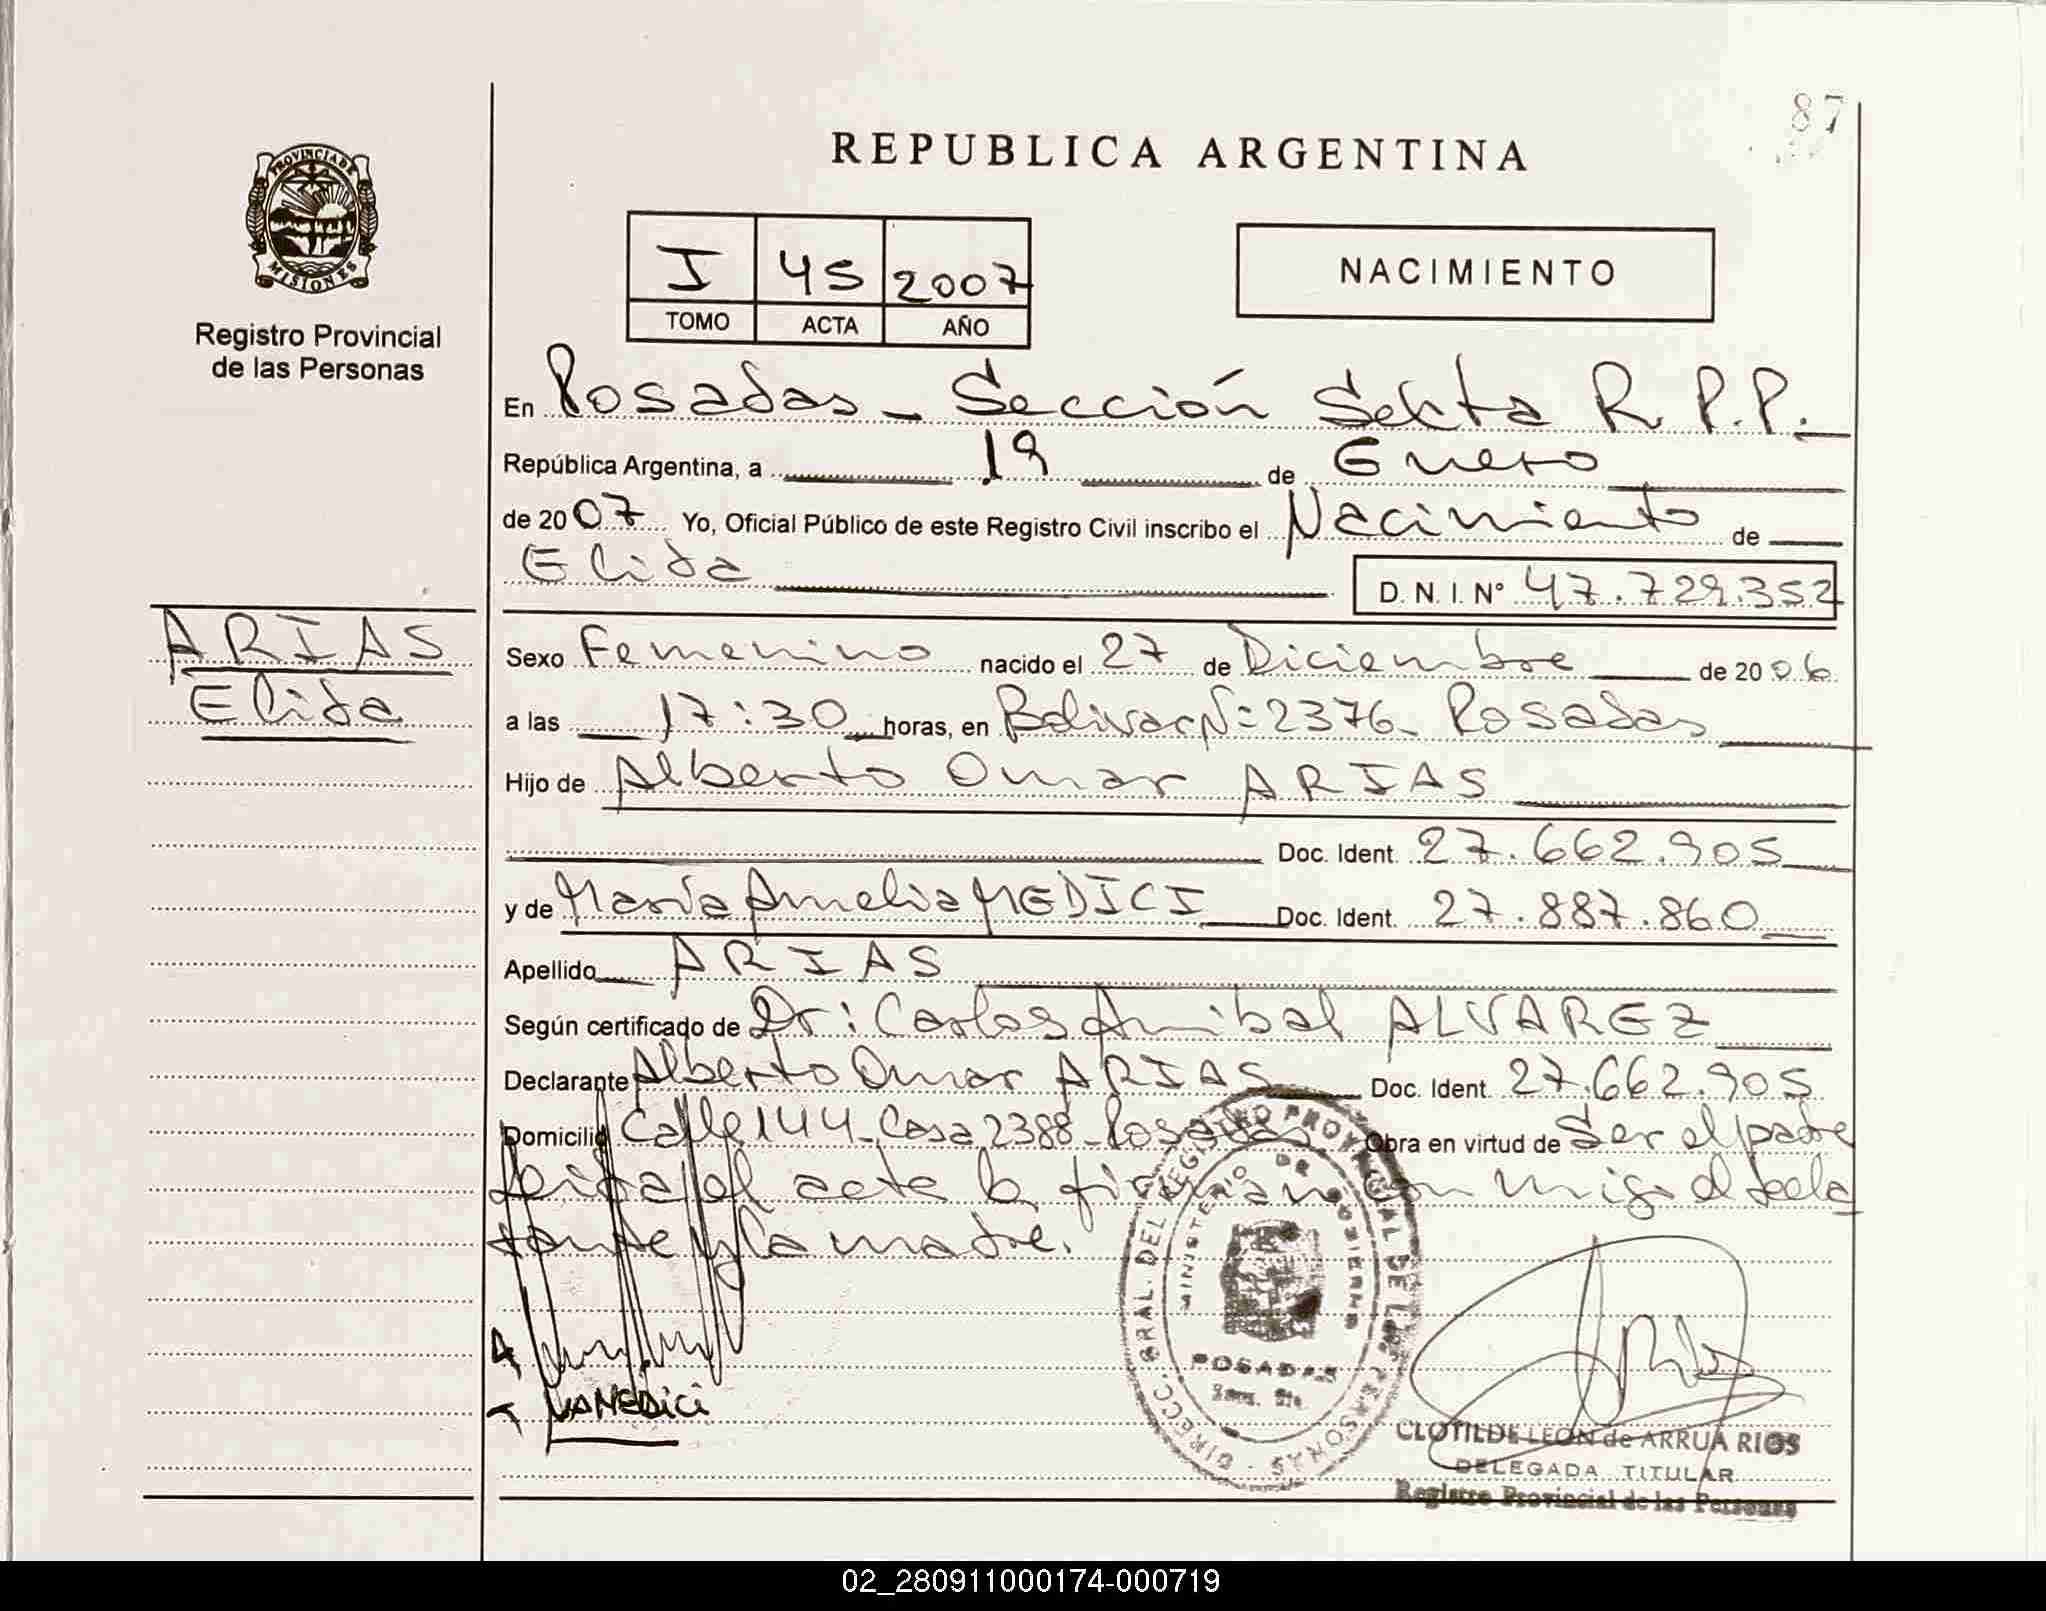 87
REPUBLICA ARGENTINA
PROVINCIA DE
MISIONES
Registro Provincial
de las Personas
I 45 2007
TOMO ACTA AÑO
NACIMIENTO
En Posadas - Sección Sexta R.P.P.-
República Argentina, a 19 de Enero
de 2007 Yo, Oficial Público de este Registro Civil inscribo el Nacimiento de
Elida
D. N. I. N° 47.729.352
ARIAS
Elida
Sexo Femenino nacido el 27 de Diciembre de 2006
a las 17:30 horas, en Bolivar N= 2376- Posadas
Hijo de Alberto Omar ARIAS
Doc. Ident. 27.662.905
y de María Amelia MEDICI Doc. Ident. 27.887.860
Apellido ARIAS
Según certificado de Dr: Carlos Anibal ALVAREZ
Declarante Alberto Omar ARIAS Doc. Ident. 27.662.905
Domicilio Calle 144- Casa 2388- Posadas Obra en virtud de Ser el padre
leida el acta la firman conmigo el decla
rante y la madre.
MEDici
DIRECC. GRAL. DEL REGISTRO PROVINCIAL DE LAS PERSONAS
MINISTERIO DE GOBIERNO
POSADAS
CLOTILDE LEON de ARRUA RIOS
DELEGADA TITULAR
Registro Provincial de las Personas
02_280911000174-000719